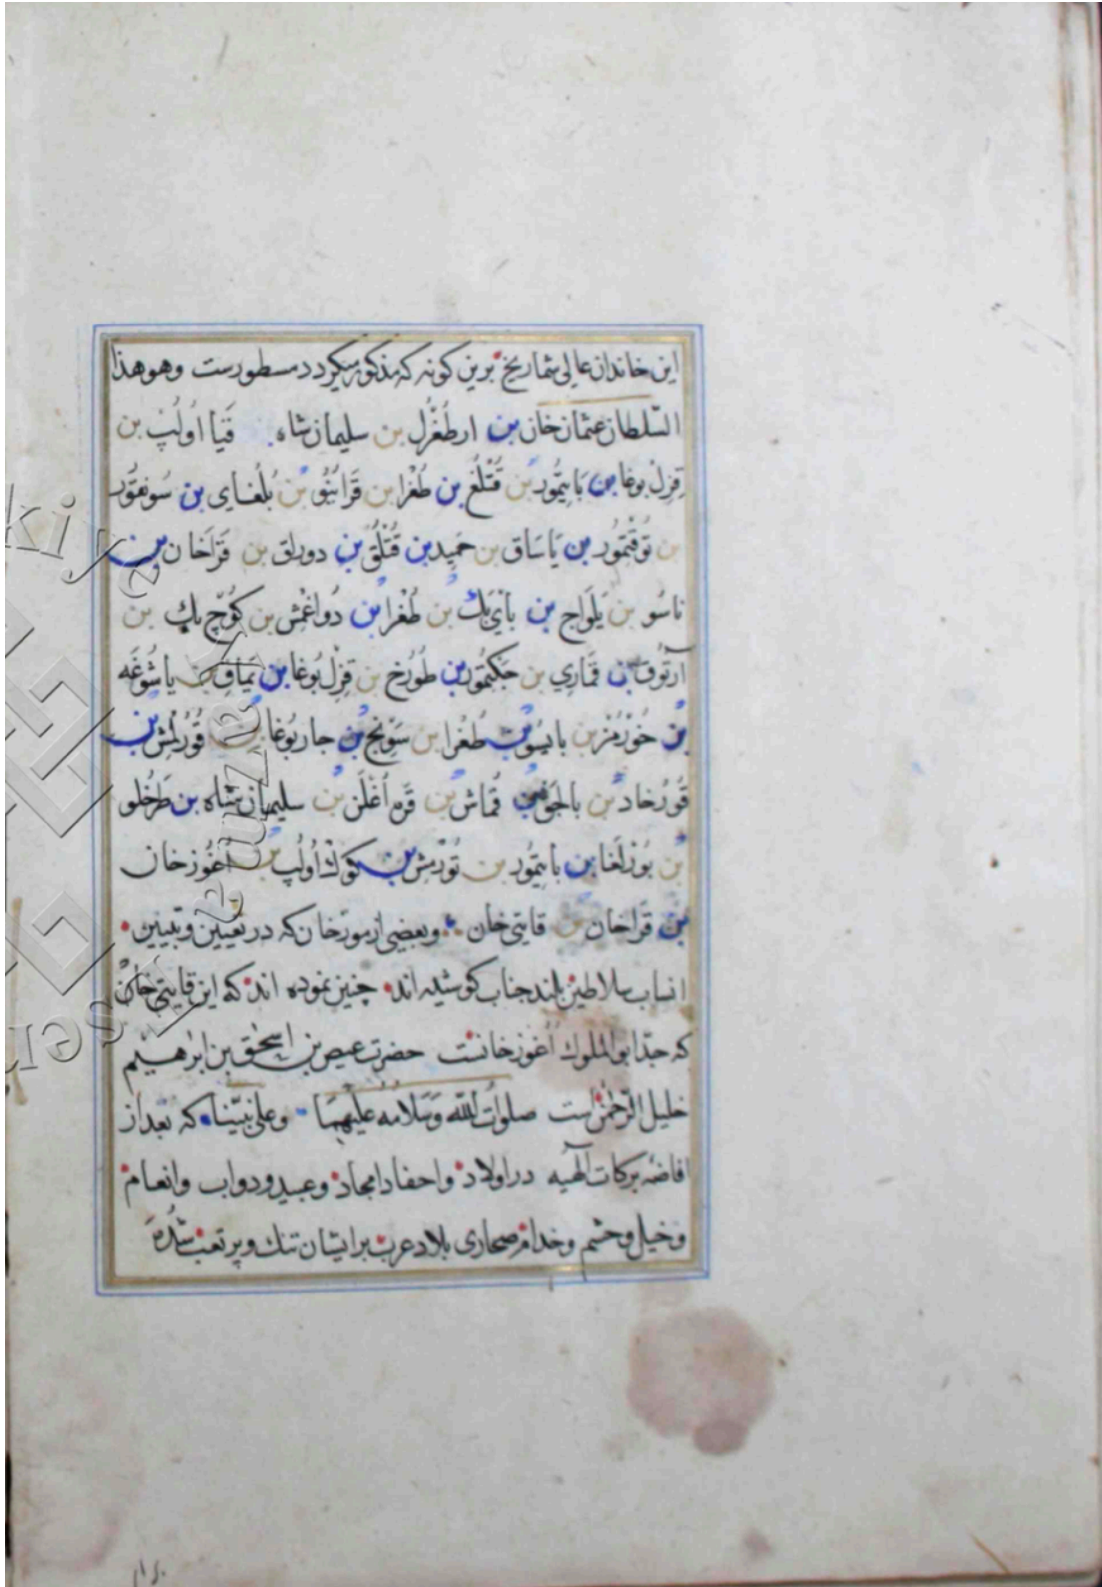 این خاندان عالی شماریخ برین کونه که مذکور میکردد مسطورست وهو هذا
السّلطان عثمان خان بن ارطُغْرُل بن سلیمان شاه قَیَا اُولُپ بن
قِزِل بوغا بن بَایتِمُور بن قُتْلُغ بن طُغْرا بن قَرَایْتُو بن بُلْغای بن سُونقُور
بن تُوقْتَمُور بن یَاسَاق بن حَمِید بن قُتْلُق بن دورلق بن قَرَاخان بن
ناسُو بن یَلَواج بن بَایْ بَك بن طُغْرا بن دُواغْمِش بن کُوچ بك بن
آرتُوق بن قَمَاری بن جَکتَمُور بن طُورَخ بن قِزِل بُوغا بن یَماق بن یاشُوغَه
بن خُورْمُز بن بایسُوب بن طُغْرا بن سَوِنج بن جاربُوغا بن قُورُلْمِش بن
قُورُخاد بن بالجوق بن قُماش بن قَره اُغْلَن بن سلیمان شاه بن طَرْخَلو
بن بُوزلَغا بن بایتِمُور بن تُورْمِش بن کُوك اُولُپ بن اُغُوزخان
بن قَرَاخان بن قایتی خان وبعضی از مورّخان که در تعیین وتبیین
انساب سلاطین بلند جناب کوشیده اند چنین نموده اند که این قایتی خان
که جدّ ابو الملوك اُغوز خانست حضرت عیص بن اسحٰق بن ابرٰهیم
خلیل الرّحمٰن است صلوات اللّه وَسَلامُه علیهما وعلی نبیّنا که بعد از
افاضهٔ برکات آلهیه در اولاد واحفاد امجاد وعبید ودواب وانعام
وخیل وحشم وخدام صحاری بلاد عرب بر ایشان تنك وپر تعب شُده